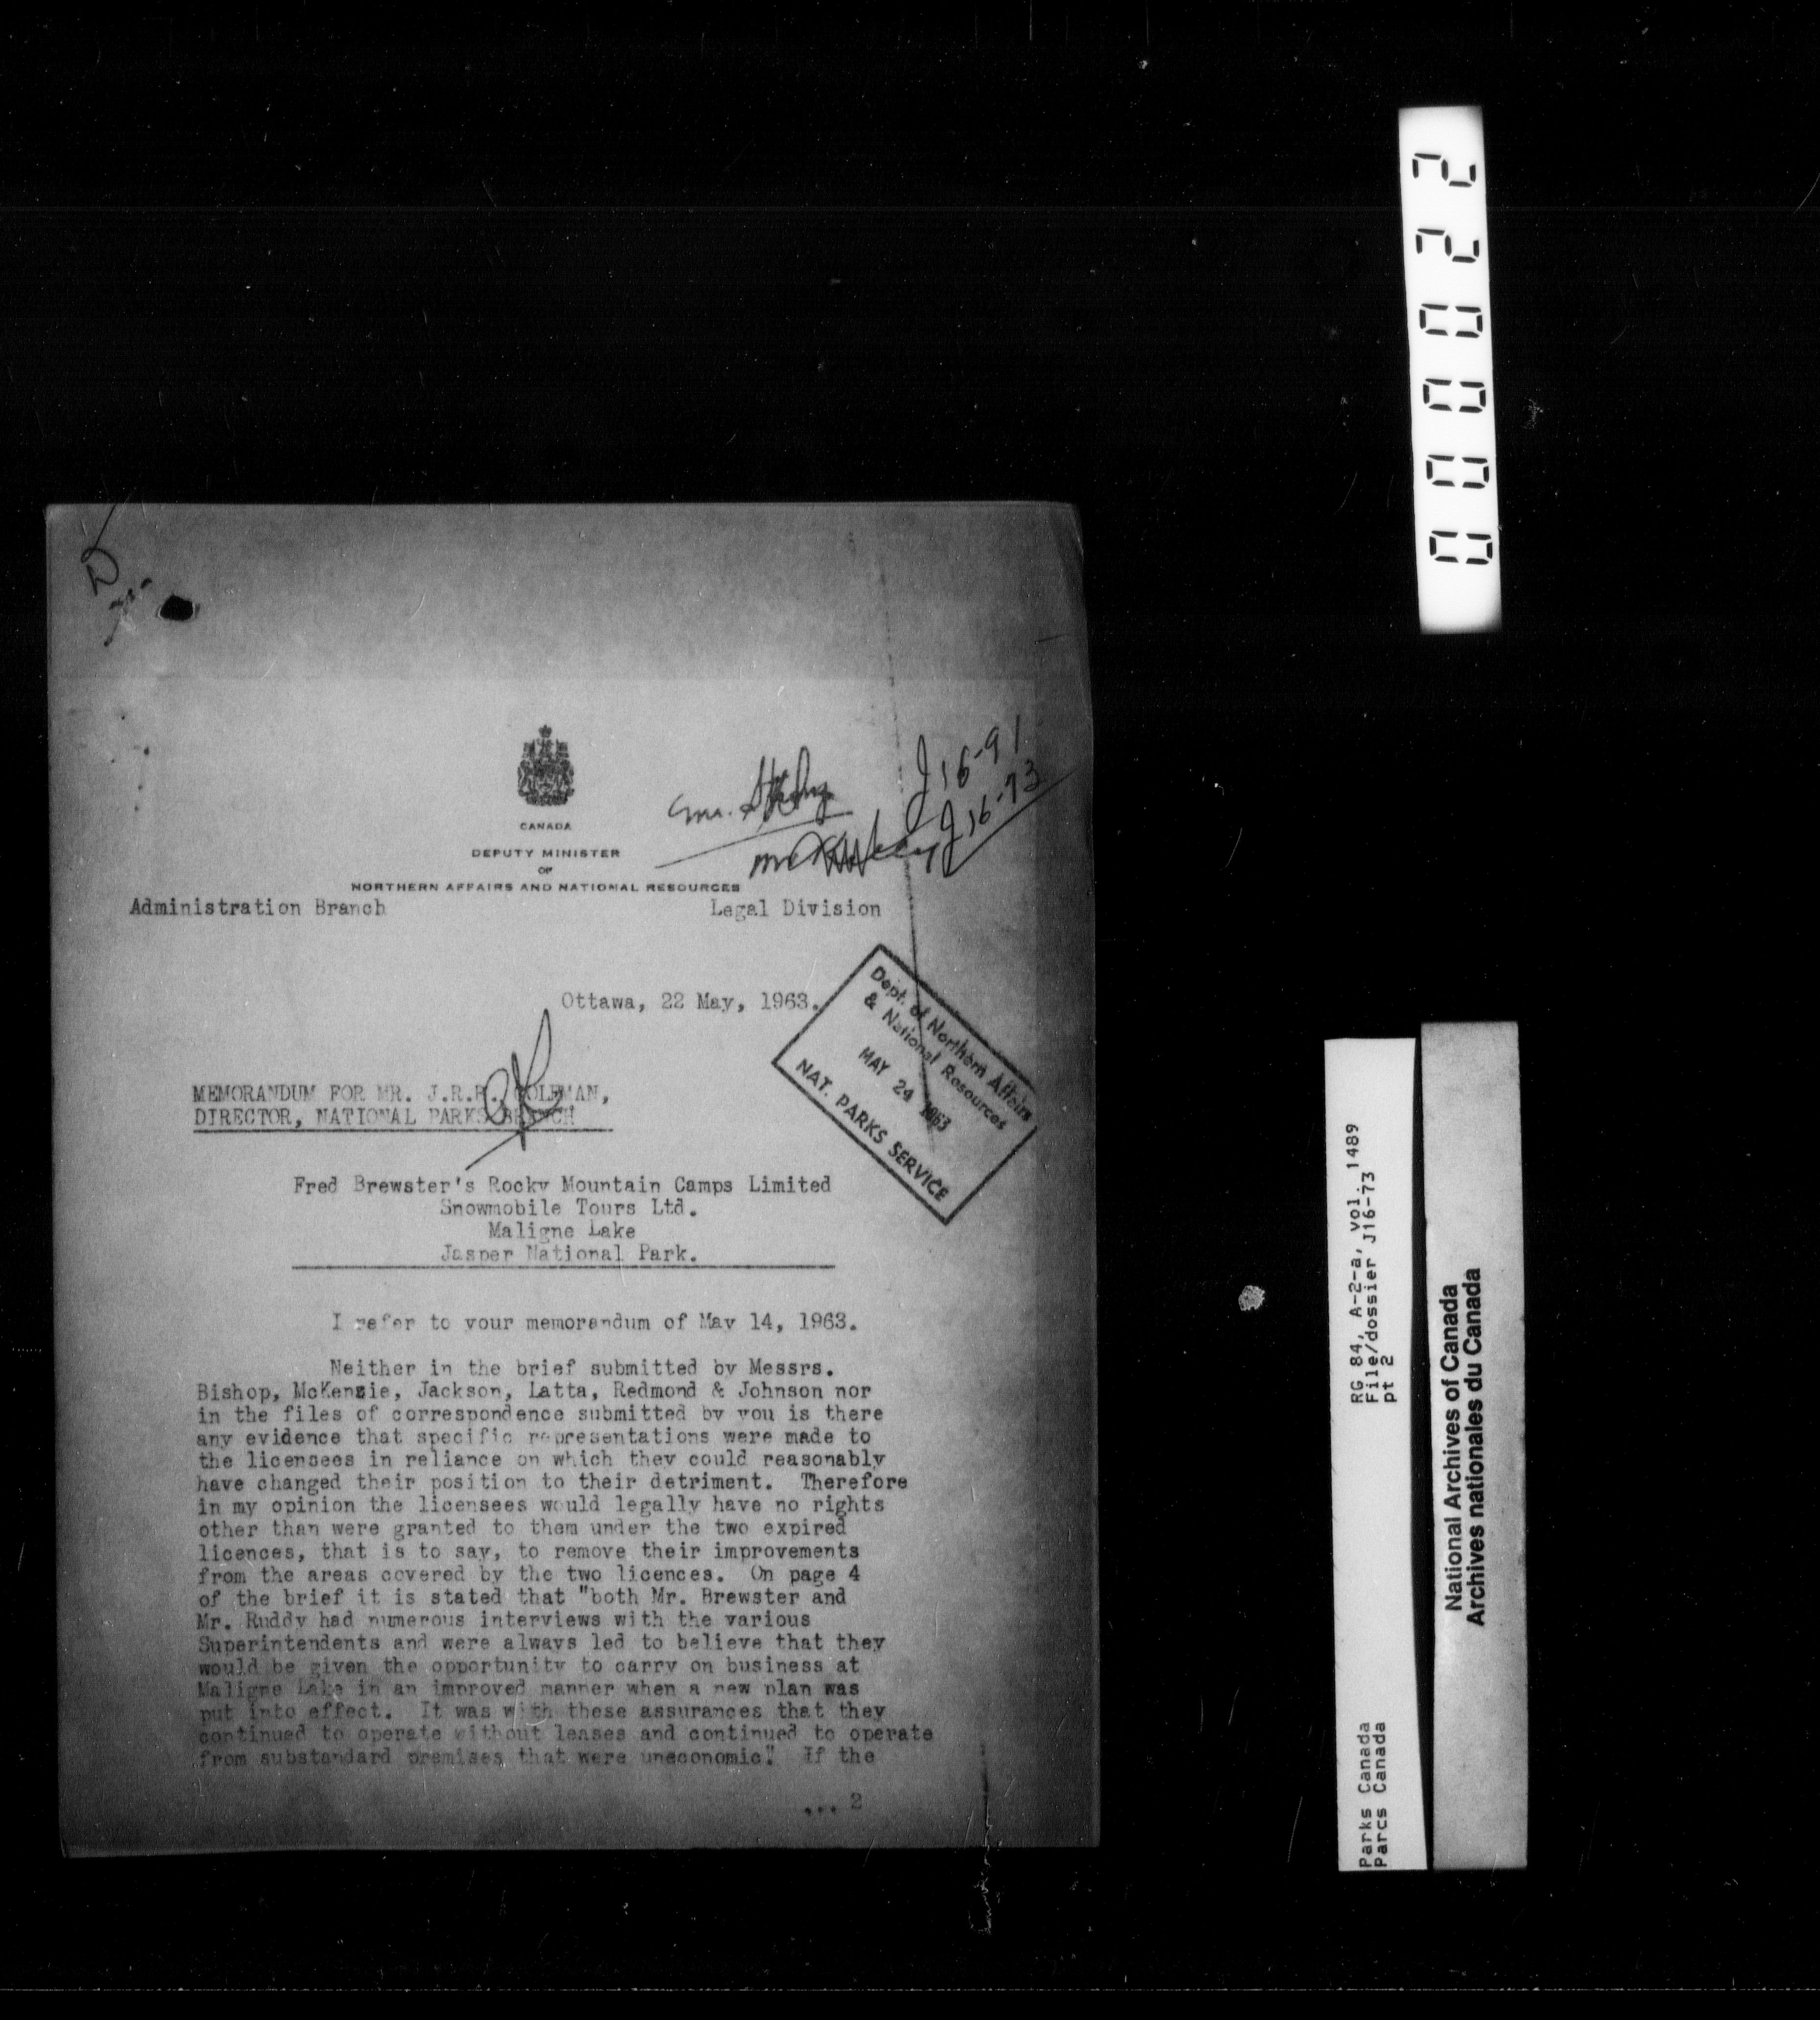 000022
J16-91
J16-73
CANADA
DEPUTY MINISTER
OF
NORTHERN AFFAIRS AND NATIONAL RESOURCES
Administration Branch Legal Division
Ottawa, 22 May, 1963.
Dept. of Northern Affairs
& National Resources
MAY 24 1963
NAT. PARKS SERVICE
MEMORANDUM FOR MR. J.R.B. COLEMAN,
DIRECTOR, NATIONAL PARKS BRANCH
Fred Brewster's Rocky Mountain Camps Limited
Snowmobile Tours Ltd.
Maligne Lake
Jasper National Park.
I refer to your memorandum of May 14, 1963.
Neither in the brief submitted by Messrs.
Bishop, McKenzie, Jackson, Latta, Redmond & Johnson nor
in the files of correspondence submitted by you is there
any evidence that specific representations were made to
the licensees in reliance on which they could reasonably
have changed their position to their detriment. Therefore
in my opinion the licensees would legally have no rights
other than were granted to them under the two expired
licences, that is to say, to remove their improvements
from the areas covered by the two licences. On page 4
of the brief it is stated that "both Mr. Brewster and
Mr. Ruddy had numerous interviews with the various
Superintendents and were always led to believe that they
would be given the opportunity to carry on business at
Maligne Lake in an improved manner when a new plan was
put into effect. It was with these assurances that they
continued to operate without leases and continued to operate
from substandard premises that were uneconomic." If the
... 2
RG 84, A-2-a, vol. 1489
File/dossier J16-73
pt 2
Parks Canada
Parcs Canada
National Archives of Canada
Archives nationales du Canada